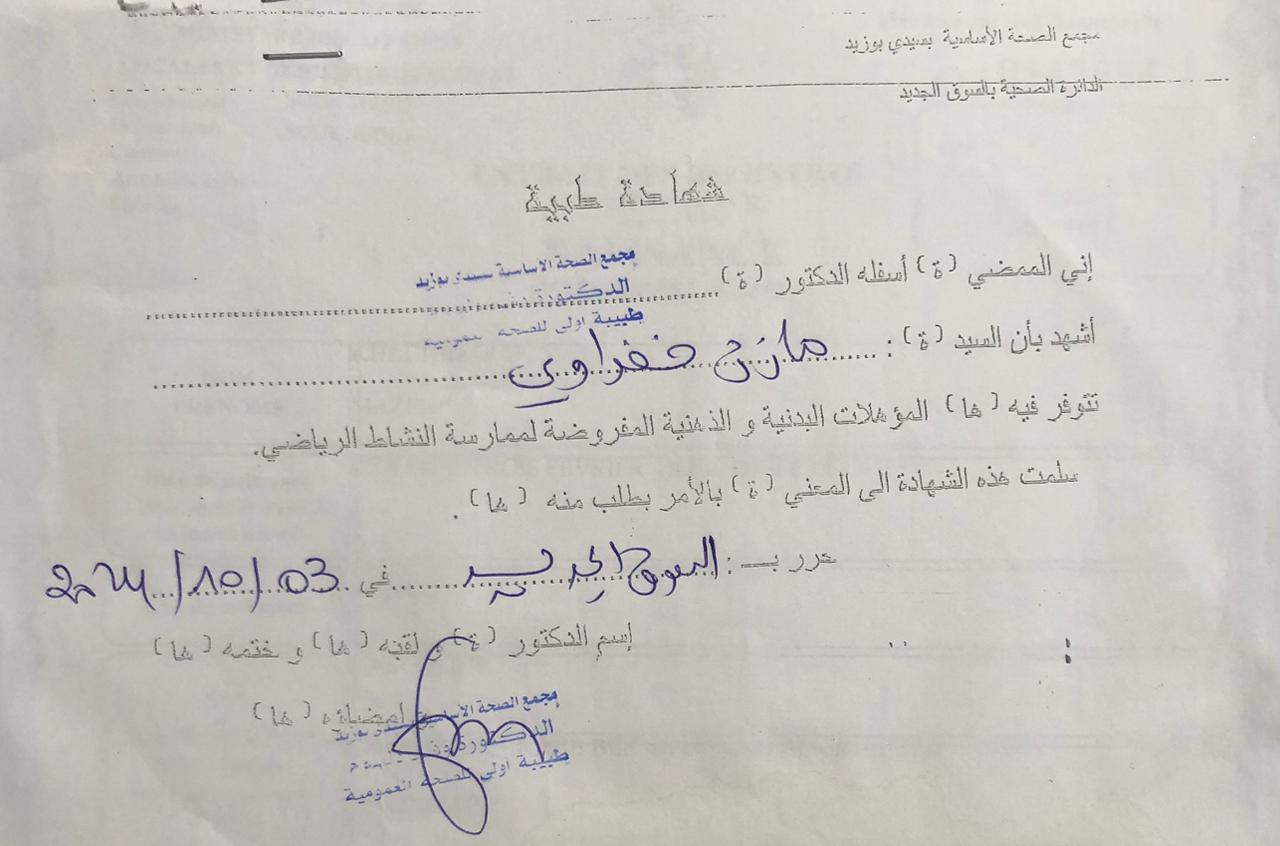 مجمع الصحة الأساسية بسيدي بوزيد
الدائرة الصحية بالسوق الجديد
شهادة طبية
مجمع الصحة الأساسية سيدي بوزيد
إني الممضي (ة) أسفله الدكتور (ة)
الدكتورة
طبيبة أولى للصحة العمومية
أشهد بأن السيد (ة) : مازن خضراوي
تتوفر فيه (ها) المؤهلات البدنية و الذهنية المفروضة لممارسة النشاط الرياضي.
سلمت هذه الشهادة الى المعني (ة) بالأمر بطلب منه (ها) .
حرر بـ : السوق الجديد في 03/10/2024
إسم الدكتور (ة) و لقبه (ها) و ختمه (ها)
إمضاؤه (ها)
مجمع الصحة الأساسية سيدي بوزيد
الدكتورة
طبيبة أولى للصحة العمومية